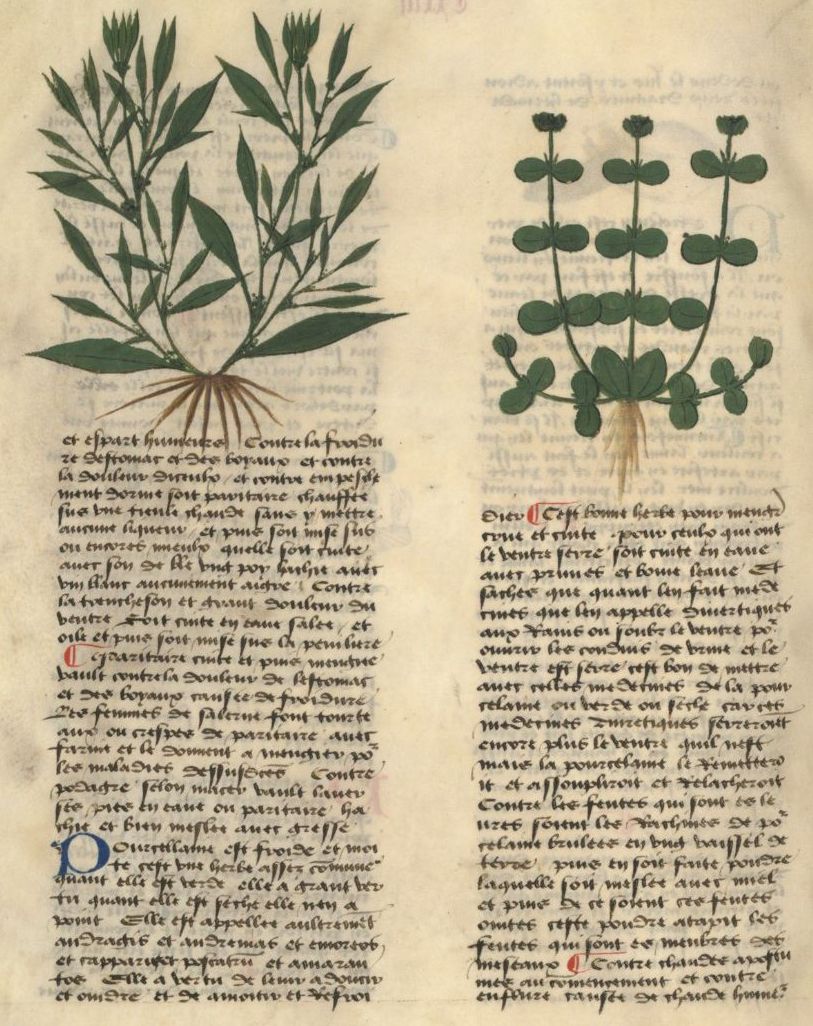 et espart humeurs Contre la froidu
re destomac et des boyaux et contre
la douleur diceulx et contre empesche
ment dorine soit paritaire chauffee
sus une tieule chaude sans y mettre
aucune liqueur et puis soit mise sus
ou encores mieulx quelle soit cuite
avec son de ble ung poy hachie avec
vin blanc aucunement aigre Contre
la trencheson et grant douleur du
ventre Soit cuite en eaue salee et
oile et puis soit mise sus la peniliere
¶ Paritaire cuite et puis mengee
vault contre la douleur de lestomac
et des boyaux causee de froidure
Les femmes de salerne font tourte
aux ou crespes de paritaire avec
farine et le donnent a mengier po^r
les maladies dessusdictes Contre
podagre selon macer vault laver
ses pies en eaue ou paritaire ha
chie et bien meslee avec gresse
Pourcellaine est froide et moi
te cest une herbe assez commune
quant elle est verde elle a grant ver
tu quant elle est seche elle nen a
point Elle est appellee aultremēt
andragis et andremas et
et et amaran
tos Elle a vertu de leur adoucir
et oindre et de amoitir et Refroi
dier ¶ Cest bonne herbe pour mengr
crue et cuite pour ceulx qui ont
le ventre serre soit cuite en eaue
avec prunes et boive leaue Et
saches que quant len fait mede
cines que len appelle diuretiques
aux Rains ou soubz le ventre po^r
ouvrir les conduis de urine et le
ventre est serre cest bon de mettre
avec celles medecines de la pour
celaine ou verde ou seche car ces
medecines diuretiques serreroiēt
encore plus le ventre quil nest
mais la pourcelaine le Remettero
it et assoupliroit et Relacheroit
Contre les fentes qui sont es le
vres soient les Rachines de po^r
celaine brulees en ung vaissel de
terre puis en soit faite pouldre
laquelle soit meslee avec miel
et puis de ce soient ces fentes
ointes ceste pouldre les
fentes qui sont es menbres des
meseaux ¶ Contre chaudes apostu
mes au comencement et contre
enflure causee de chaude humeʳ